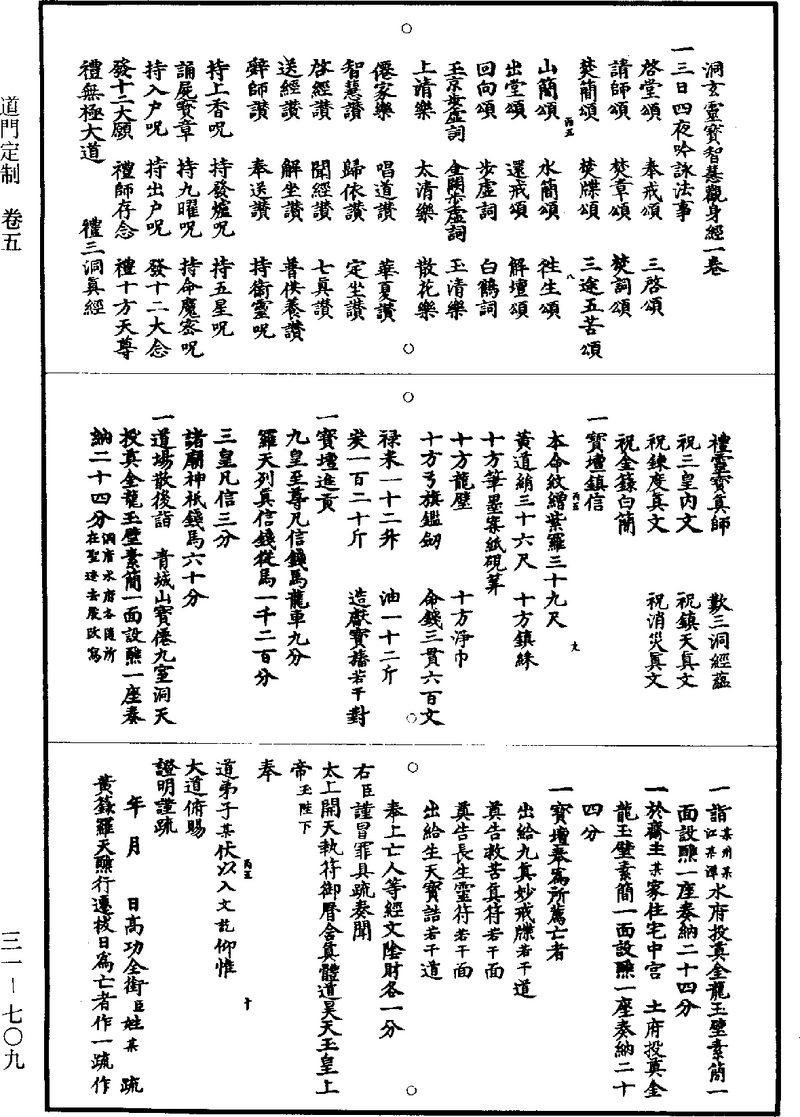 洞玄靈寶智慧觀身經一卷
一三日四夜吟詠法事
啓堂頌 奉戒頌 三啓頌
請師頌 焚章頌 焚詞頌
焚簡頌 焚牒頌 三途五苦頌
山簡頌 水簡頌 往生頌
出堂頌 還戒頌 解壇頌
回向頌 步虛詞 白鶴詞
玉京步虛詞 金闕步虛詞 玉清樂
上清樂 太清樂 散花樂
僊家樂 唱道讚 華夏讚
智慧讚 歸依讚 定坐讚
啓經讚 聞經讚 七真讚
送經讚 解坐讚 普供養讚
辭師讚 奉送讚 持衛靈呪
持上香呪 持發爐呪 持五星呪
誦屍寶章 持九曜呪 持命魔密呪
持入户呪 持出户呪 發十二大念
發十二大願 禮師存念 禮十方天尊
禮無極大道 禮三洞真經
禮靈寶真師 歎三洞經蘊
祝三皇內文 祝鎮天真文
祝鍊度真文 祝消災真文
祝金籙白簡
一寶壇鎮信
本命紋繒紫羅三十九尺
黃道絹三十六尺 十方鎮綵
十方筆墨案紙硯筭
十方龍璧 十方淨巾
十方弓旗鑑劒 命錢三貫六百文
祿米一十二升 油一十二斤
炭一百二十斤 造獻寶旛若干對
一寶壇進貢
九皇至尊凡信錢馬龍車九分
羅天列真信錢從馬一千二百分
三皇凡信三分
諸廟神祇錢馬六十分
一道場散後詣 青城山寶僊九室洞天
投奠金龍玉璧素簡一面設醮一座奏
納二十四分洞府水府各隨所在聖迹去處改寫
一詣某州某江某潭水府投奠金龍玉璧素簡一
面設醮一座奏納二十四分
一於齋主某家住宅中宮 土府投奠金
龍玉璧素簡一面設醮一座奏納二十
四分
一寶壇奉為所薦亡者
出給九真妙戒牒若干道
奠告救苦真符若干面
奠告長生靈符若干面
出給生天寶誥若干道
奉上亡人等經文陰財各一分
右臣謹冒罪具疏奏聞
太上開天執符御曆含真體道昊天玉皇上
帝玉陛下
奉
道弟子某伏以入文訖仰惟
大道俯賜
證明謹疏
年 月 日高功全銜臣姓某 疏
黃籙羅天醮行遷拔日為亡者作一疏作
道門定制 卷五
三一－七〇九